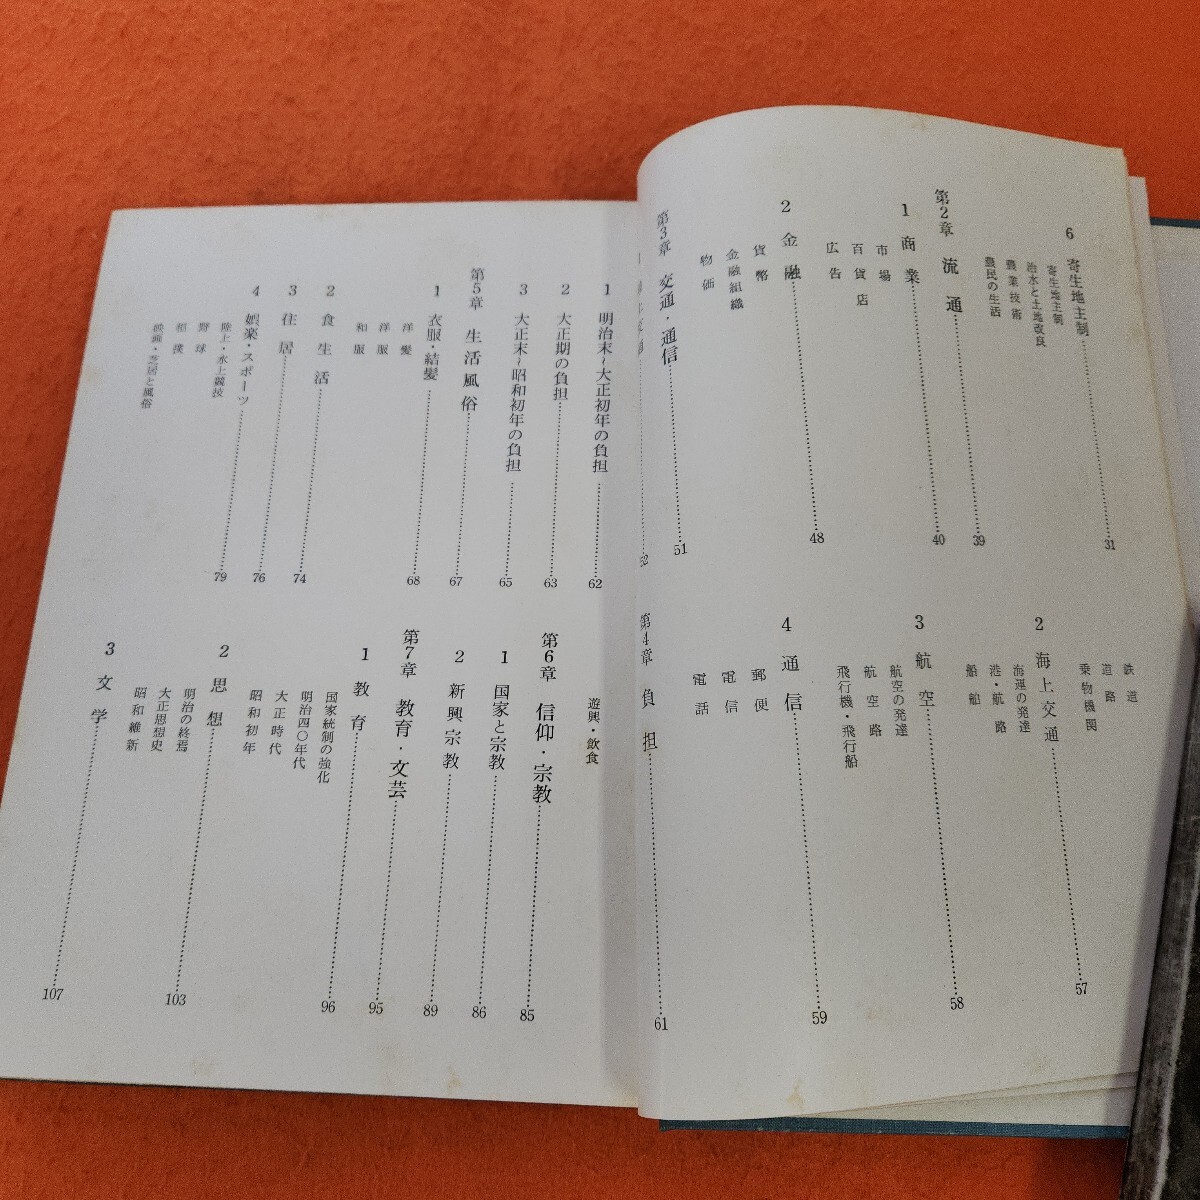 6 寄生地主制 31
寄生地主制
治水と土地改良
農業技術
農民の生活
第2章 流通 39
1 商業 40
市場
百貨店
広告
2 金融 48
貨幣
金融組織
物価
第3章 交通・通信 51
52
鉄道
道路
乗物機関
2 海上交通 57
海運の発達
港・航路
船舶
3 航空 58
航空の発達
航空路
飛行機・飛行船
4 通信 59
郵便
電信
電話
第4章 負担 61
1 明治末~大正初年の負担 62
2 大正期の負担 63
3 大正末~昭和初年の負担 65
第5章 生活風俗 67
1 衣服・結髪 68
洋髪
洋服
和服
2 食生活 74
3 住居 76
4 娯楽・スポーツ 79
陸上・水上競技
野球
相撲
映画・芝居と風俗
遊興・飲食
第6章 信仰・宗教 85
1 国家と宗教 86
2 新興宗教 89
第7章 教育・文芸 95
1 教育 96
国家統制の強化
明治四〇年代
大正時代
昭和初年
2 思想 103
明治の終焉
大正思想史
昭和維新
3 文学 107